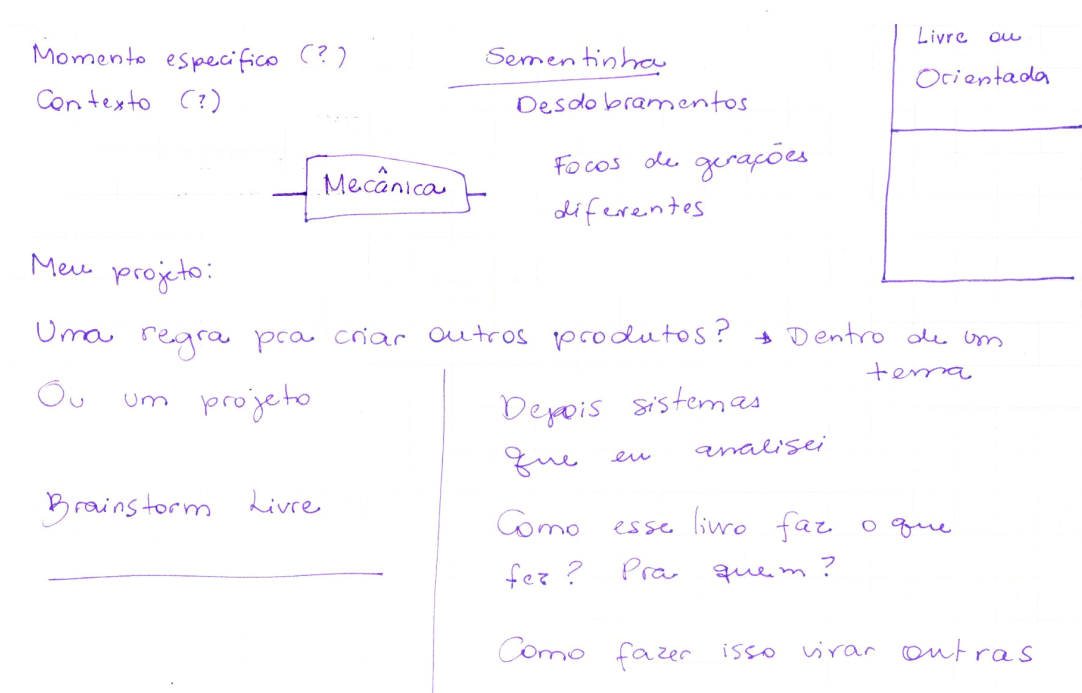 Momento específico (?)
Contexto (?)
Sementinha
Desdobramentos
Focos de gerações
diferentes
Mecânica
Livre ou
Orientada
Meu projeto:
Uma regra pra criar outros produtos? → Dentro de um
tema
Ou um projeto
Brainstorm Livre
Depois sistemas
que eu analisei
Como esse livro faz o que
fez? Pra quem?
Como fazer isso virar outras